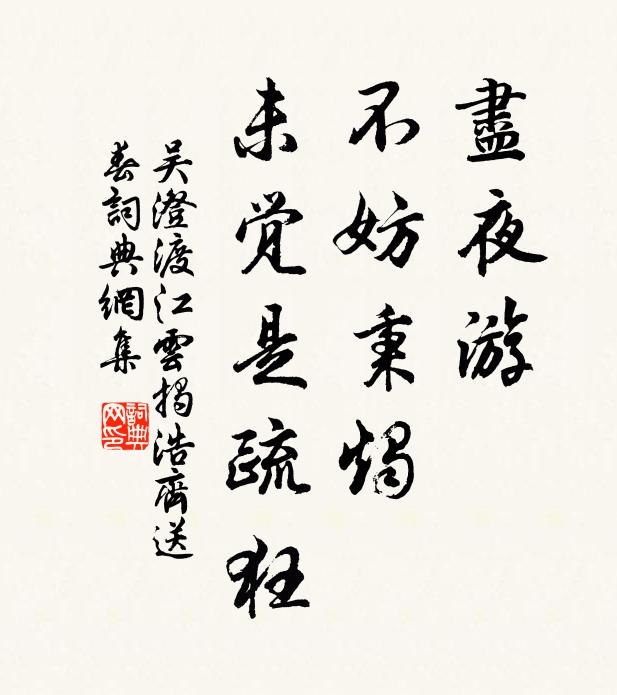 盡夜游
不妨秉燭
未覺是疏狂
吳澄渡江雲揭浩齋送
春詞典網集
詞典网印